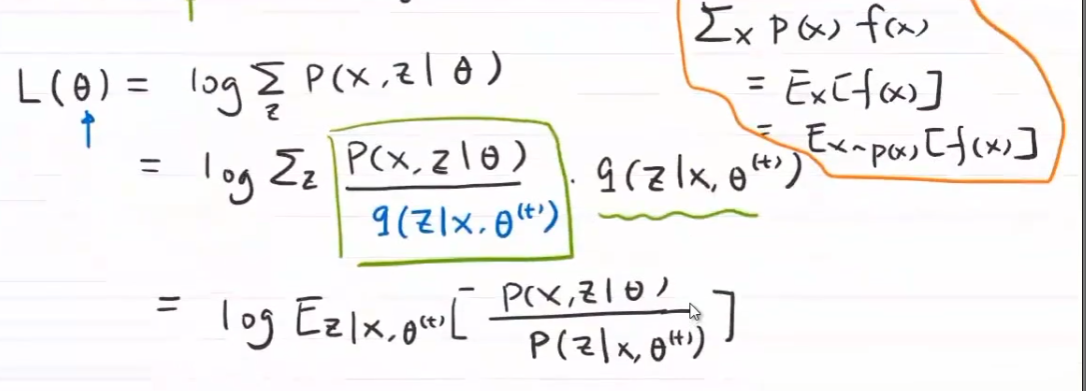 Σx P(x) f(x)
= Ex[f(x)]
= Ex~p(x)[f(x)]
L(θ) = log Σz P(x,z|θ)
= log Σz P(x,z|θ) / q(z|x,θ^(t)) · q(z|x,θ^(t))
= log E z|x,θ^(t) [ P(x,z|θ) / P(z|x,θ^(t)) ]